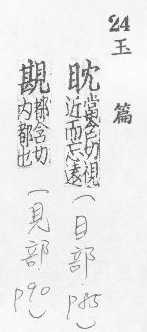 24 玉篇
眈 當含切視
近而忘遠 (目部 p85)
都含切
内都也 (見部 p90)